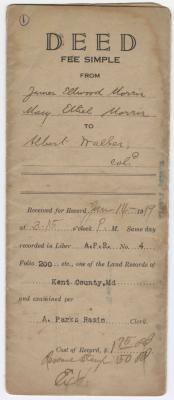 1
DEED
FEE SIMPLE
FROM
James Ellwood Morris
Mary Ethel Morris
TO
Albert Walker,
col'd
Received for Record 1919
at 3:15 o'clock P. M. Same day
recorded in Liber A.P.R. No. 4
Folio 200 etc., one of the Land Records of
Kent County, Md
and examined per
A. Parks Rasin Clerk.
Cost of Record, $